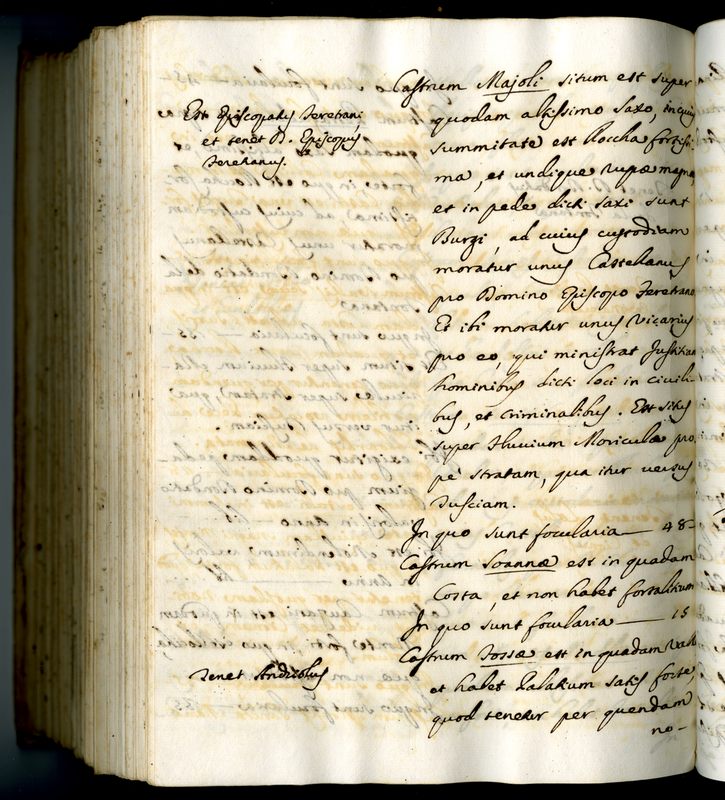 Castrum Majoli situm est super
quodam altissimo saxo, in cuius
summitate est Roccha fortissi-
ma, et undique rupæ magnæ,
et in pede dicti saxi sunt
Burgi, ad cuius custodiam
moratur unus Castellanus
pro Domino Episcopo Feretrano
Et ibi moratur unus Vicarius
pro eo, qui ministrat Justitiam
hominibus dicti loci in civili-
bus, et criminalibus. Est situs
super fluvium Mariculæ pro
pè stratam, qua itur versus
Tusciam.
In quo sunt focularia — 48 -
Castrum Soannæ est in quadam
Costa, et non habet fortalitium
In quo sunt focularia — 15
Castrum Tossæ est in quadam Valle
et habet Palatium satis forte,
quod tenetur per quendam
no-
Est Episcopatus Feretani
et tenet D. Episcopus
Feretranus.
Tenet Andriolus